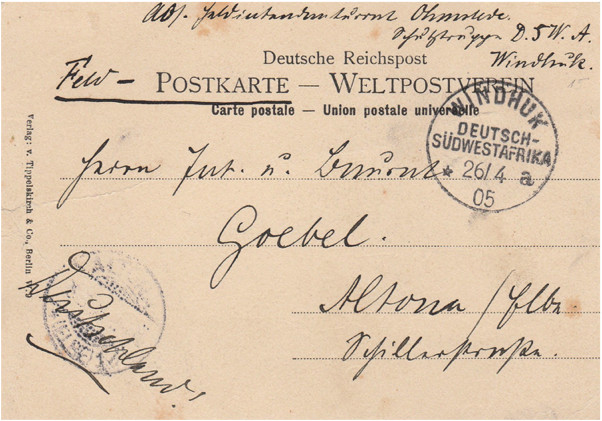 Abs. Feldintendanturrat Ohmstede.
Schutztruppe D.S.W.A.
Windhuk.
Deutsche Reichspost
Feld-
POSTKARTE — WELTPOSTVEREIN
Carte postale — Union postale universelle
WINDHUK
DEUTSCH-
SÜDWESTAFRIKA
* 26/4 a
05
Herrn Int. u. Baurat
Goebel.
Altona/Elbe
Schillerstraße.
Deutschland,
Verlag: v. Tippelskirch & Co., Berlin